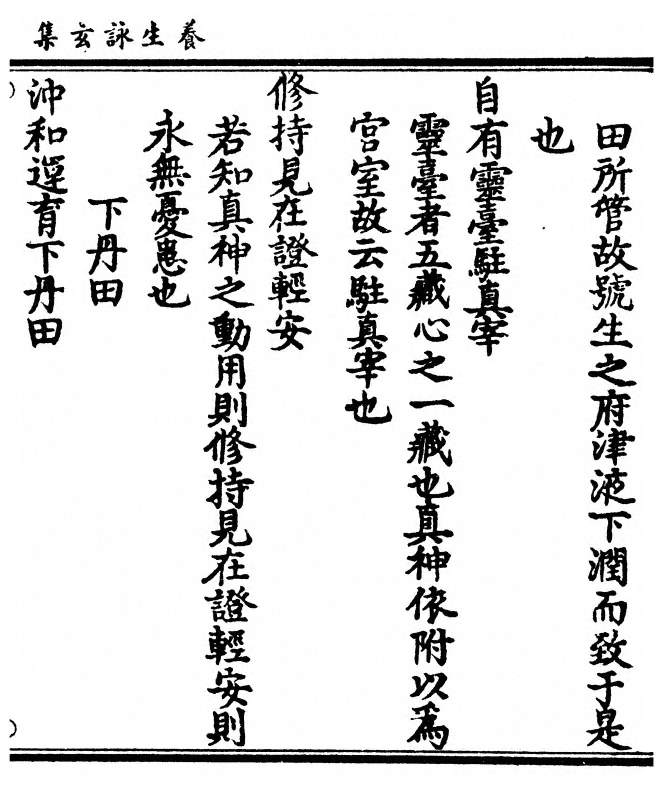 養生詠玄集
田所管故號生之府津液下潤而致于是
也
自有靈臺駐真宰
靈臺者五藏心之一藏也真神依附以爲
宮室故云駐真宰也
修持見在證輕安
若知真神之動用則修持見在證輕安則
永無憂患也
下丹田
沖和運育下丹田